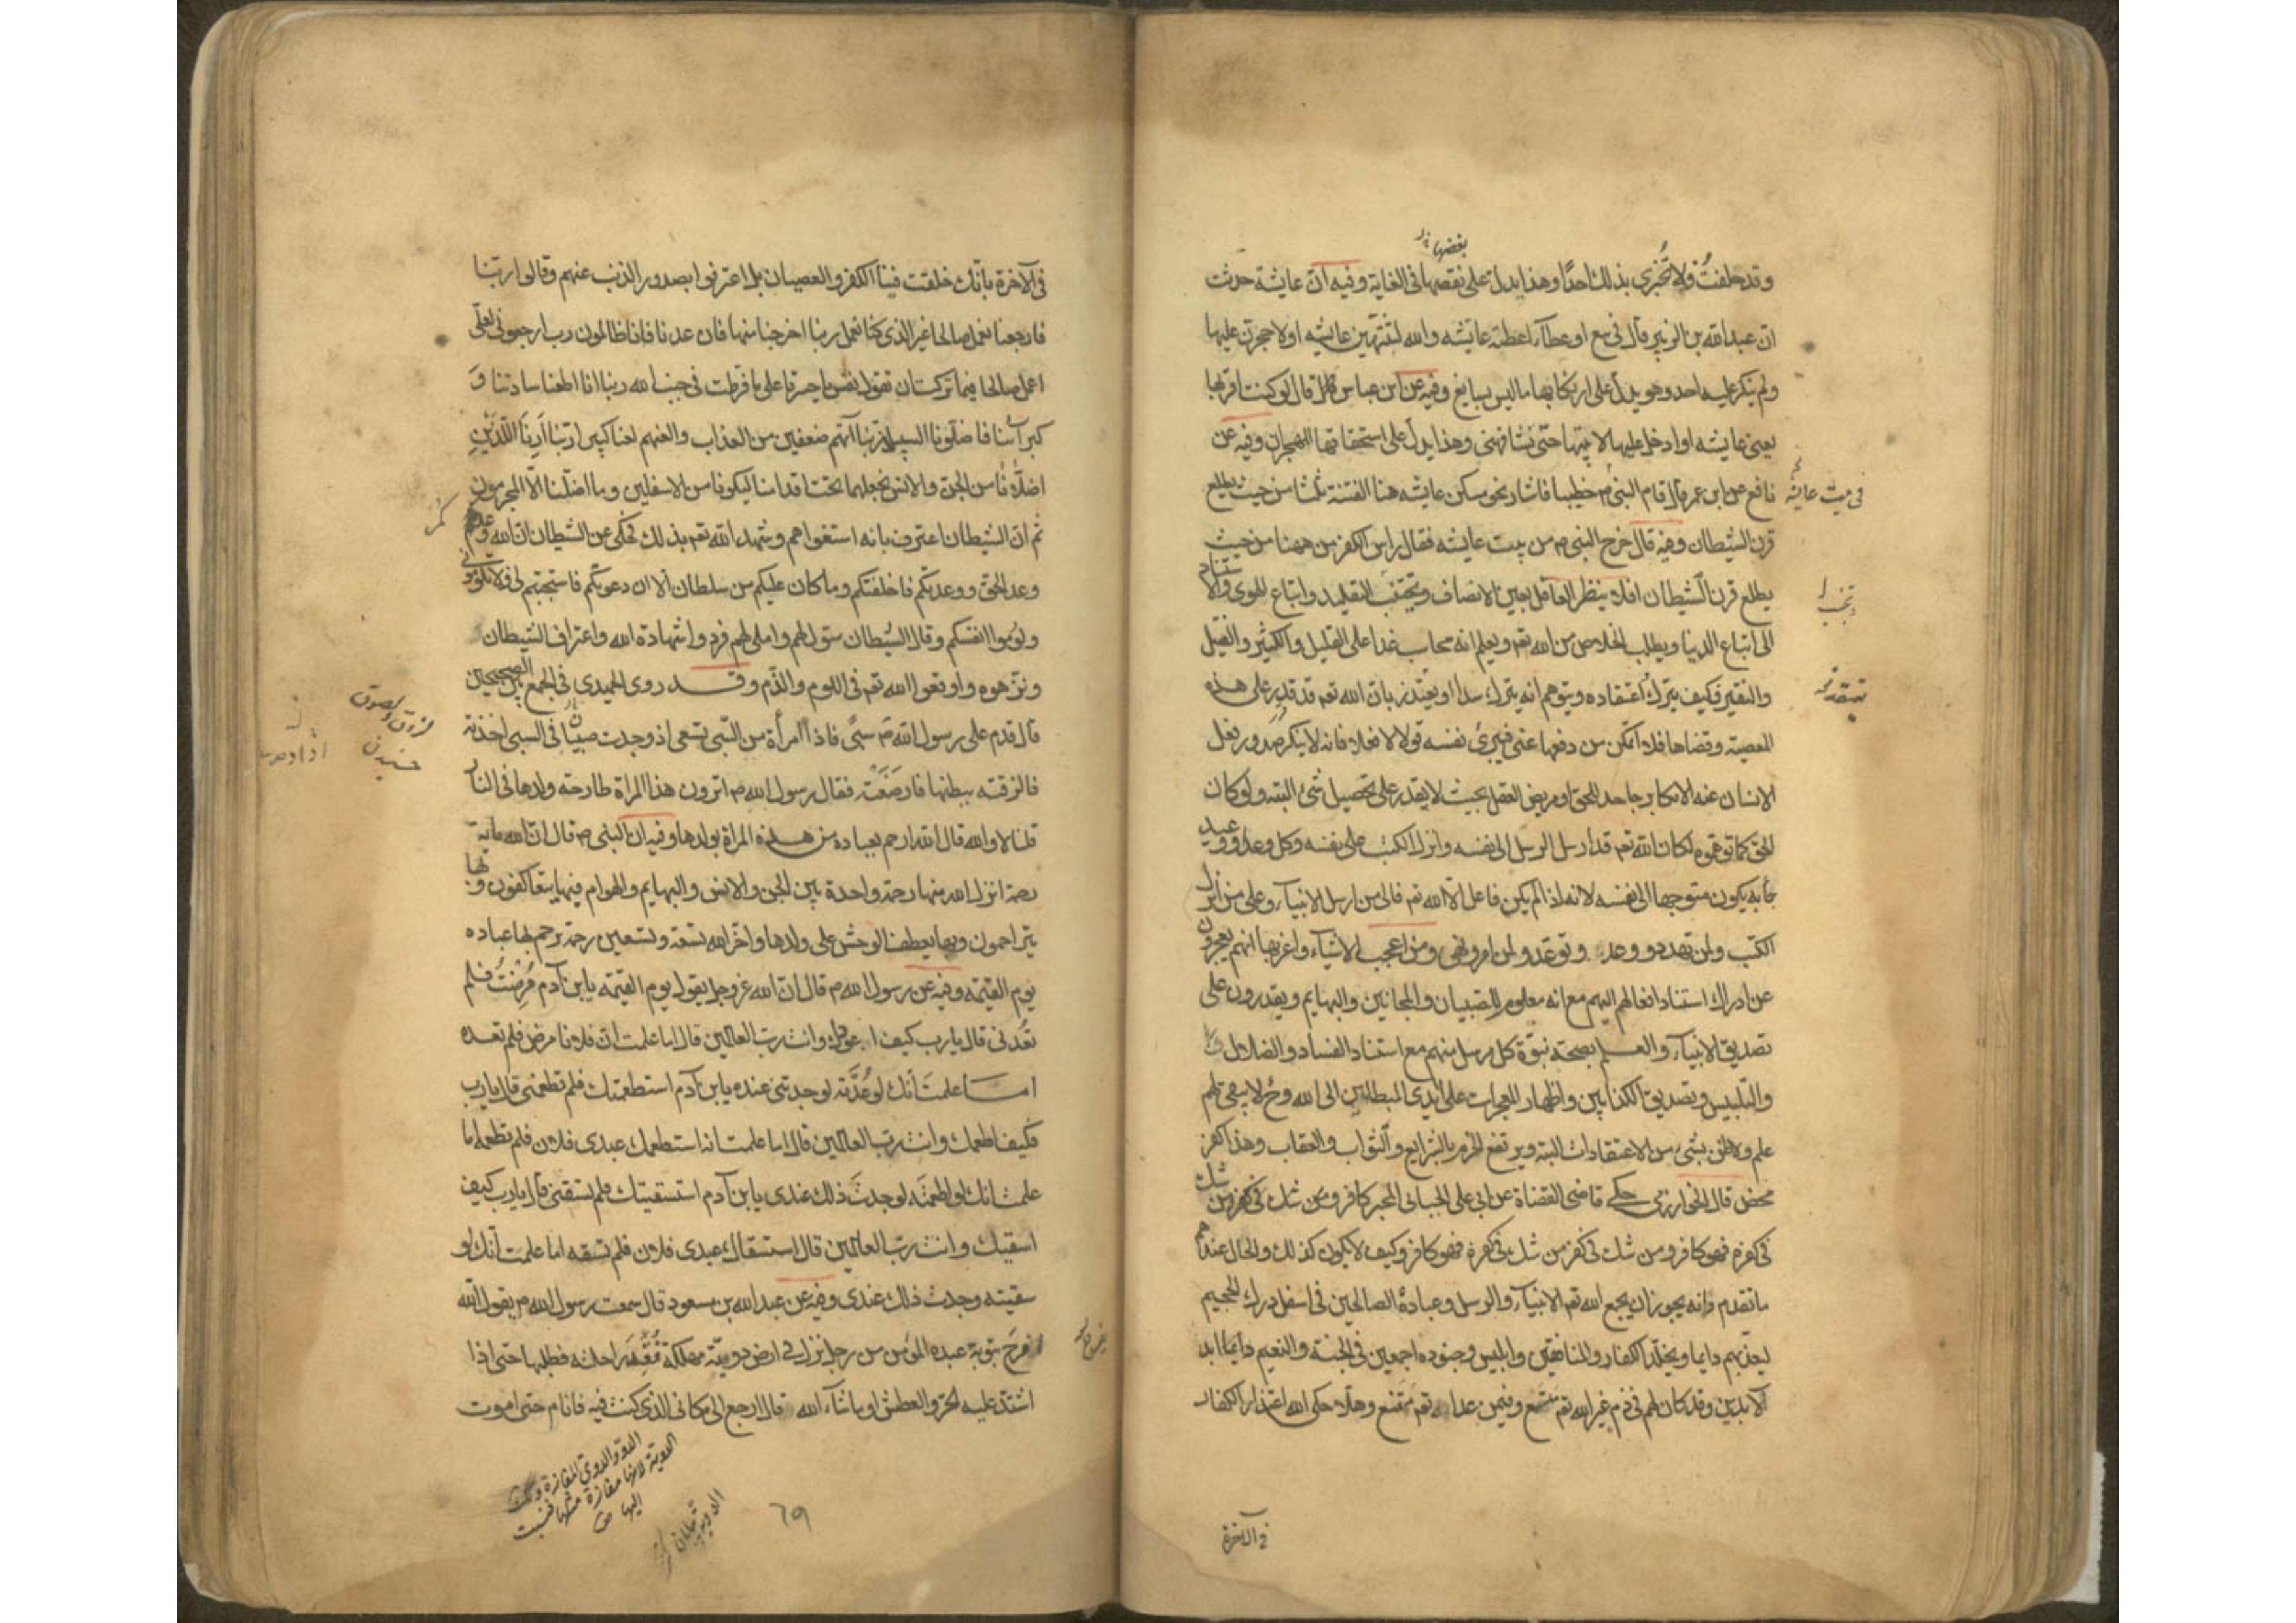 بغضها
وقد حلفتُ ولا تُخبرى بذلك احدًا وهذا يدل على نقصها فى الغاية وفيه انّ عايشة حدثت
انّ عبدالله بن الزبير قال فى بيع او عطآء اعطته عايشه والله لتنتهين عايشه او لاحجرنّ عليها
ولم ينكر عليه احد وهو يدل على ارتكابها ما ليس بسايغ وفيه عن ابن عباس قال لو كنت اقربها
يعنى عايشه او ادخل عليها لاتيتها حتى تشافهنى وهذا يدل على استحقاقها الهجران وفيه عن
نافع عن ابن عمر قال قام النبى م خطيبا فاشار نحو مسكن عايشه هنا الفتنة ثلثا من حيث يطلع
فى بيت عايشه
قرن الشيطان وفيه قال خرج النبى م من بيت عايشه فقال راس الكفر من ههنا من حيث
يطلع قرن الشيطان افلا ينظر العاقل بعين الانصاف ويجتنب التقليد واتباع الهوى والاستناد
الى اتباع الدنيا ويطلب الخلاص من الله تعم ويعلم انه محاسب غدا على القليل والكثير والفتيل
والنقير فكيف يترك اعتقاده ويتوهم انه يترك سدا او يعتذر بان الله تعم قد قدر على هذه
المعصية وقضاها فلا اتمكن من دفعها عنى فيبرئ نفسه قولا لا فعلا فانه لا ينكر صدور فعل
الانسان عنه الا مكابر جاحد للحق او مريض العقل بحيث لا يقدر على تحصيل شئ البته ولو كان
الحق كما توهموه لكان الله تعم قد ارسل الرسل الى نفسه وانزل الكتب على نفسه وكل وعد ووعيد
جآء به يكون متوجها الى نفسه لانه اذا لم يكن فاعل الّا الله تعم فالى من ارسل الانبيآء وعلى من انزل
الكتب ولمن تهدد ووعد وتوعد ولمن امر ونهى ومن اعجب الاشيآء واغربها انهم يعجزون
عن ادراك استناد افعالهم اليهم مع انه معلوم للصبيان والمجانين والبهايم ويقدرون على
تصديق الانبيآء والعلم بصحة نبوّة كل مرسل منهم مع استناد الفساد والضلال
والتلبيس وتصديق الكذابين واظهار المعجزات على ايدى المبطلين الى الله وح لا يبقى لهم
علم ولا ظن بشئ من الاعتقادات البته ويرتفع الجزم بالشرايع والثواب والعقاب وهذا كفر
محض قال الخوارزمى حكى قاضى القضاة عن ابى على الجبائى المجبر كافر ومن شك فى كفره ومن شك
فى كفره فهو كافر ومن شك فى كفر من شك فى كفره فهو كافر وكيف لا يكون كذلك والحال عندهم
ما تقدم وانه يجوز ان يجمع الله تعم الانبيآء والرسل وعباده الصالحين فى اسفل درك الجحيم
يعذبهم دايما ويخلد الكفار والمنافقين وابليس وجنوده اجمعين فى الجنة والنعيم دايما ابد
الآبدين وقد كان لهم فى ذم غير الله تعم متسع وفيمن عداه تعم مقنع وهلا حكى الله اعتذار الكفار
فى الآخرة
فى الآخرة بانّك خلقت فينا الكفر والعصيان بل اعترفوا بصدور الذنب عنهم وقالوا ربنا
فارجعنا نعمل صالحا غير الذى كنا نعمل ربنا اخرجنا منها فان عدنا فانا ظالمون رب ارجعونى لعلّى
اعمل صالحا فيما تركت ان تقول نفس يا حسرتا على ما فرطت فى جنب الله ربنا انا اطعنا سادتنا وَ
كبرآئنا فاضلّونا السبيلا ربنا آتهم ضعفين من العذاب والعنهم لعنا كبيرا ربنا اَرِنَا اللّذَيْنِ
اضلّانا من الجن والانس نجعلهما تحت اقدامنا ليكونا من الاسفلين وما اضلّنا الّا المجرمون
ثم انّ الشيطان اعترف بانه استغواهم وشهد الله تعم بذلك فحكى عن الشيطان ان الله وعدكم
وعد الحق ووعدتكم فاخلفتكم وما كان عليكم من سلطان الّا ان دعوتكم فاستجبتم لى فلا تلومونى
ولوموا انفسكم وقال الشيطان سوّل لهم واملى لهم فردوا شهادة الله واعتراف الشيطان
ونزّهوه واوقعوا الله تعم فى اللوم والذّم وقد روى الحميدى فى الجمع بين الصحيحين
قال قدم على رسول الله م سبىٌ فاذا امرأة من السّبى تسعى اذ وجدت صبيّا فى السبى اخذته
فالزقته ببطنها فارضَعَتْه فقال رسول الله م اترون هذه المراة طارحة ولدها فى النار
قلنا لا والله قال الله ارحم بعباده من هذه المراة بولدها وفيه ان النبى م قال انّ لله ماية
رحمة انزل الله منها رحمة واحدة بين الجن والانس والبهايم والهوام فبها يتعاطفون وبها
يتراحمون وبها يعطف الوحش على ولدها واخّر الله تسعة وتسعين رحمة يرحم بها عباده
يوم القيمة وفيه عن رسول الله م قال انّ الله عز وجل يقول يوم القيمة يابن آدم مَرِضتُ فلم
تعُدنى قال يا رب كيف اعودك وانت رب العالمين قال اما علمت انّ فلانا مرض فلم تعده
اما علمتَ انك لو عُدْتَه لوجدتنى عنده يابن آدم استطعمتك فلم تطعمنى قال يا رب
فكيف اطعمك وانت رب العالمين قال اما علمت انه استطعمك عبدى فلان فلم تطعمه اما
علمت انك لو اطعمتَه لوجدتَ ذلك عندى يابن آدم استسقيتك فلم تسقنى قال يا رب كيف
اسقيك وانت رب العالمين قال استسقاك عبدى فلان فلم تسقه اما علمت انك لو
سقيته وجدت ذلك عندى وفيه عن عبدالله بن مسعود قال سمعت رسول الله م يقول الله
افرح بتوبة عبده المؤمن من رجل نزل فى ارض دويّة مهلكة فَفَقَدَ راحلته فطلبها حتى اذا
اشتدّ عليه الحرّ والعطش او ما شآء الله قال ارجع الى مكانى الذى كنت فيه فانام حتى اموت
الدوّ والدوىّ المفازة
الدوية لانها مفازة مثلها فنسبت
اليها ص
٦٩